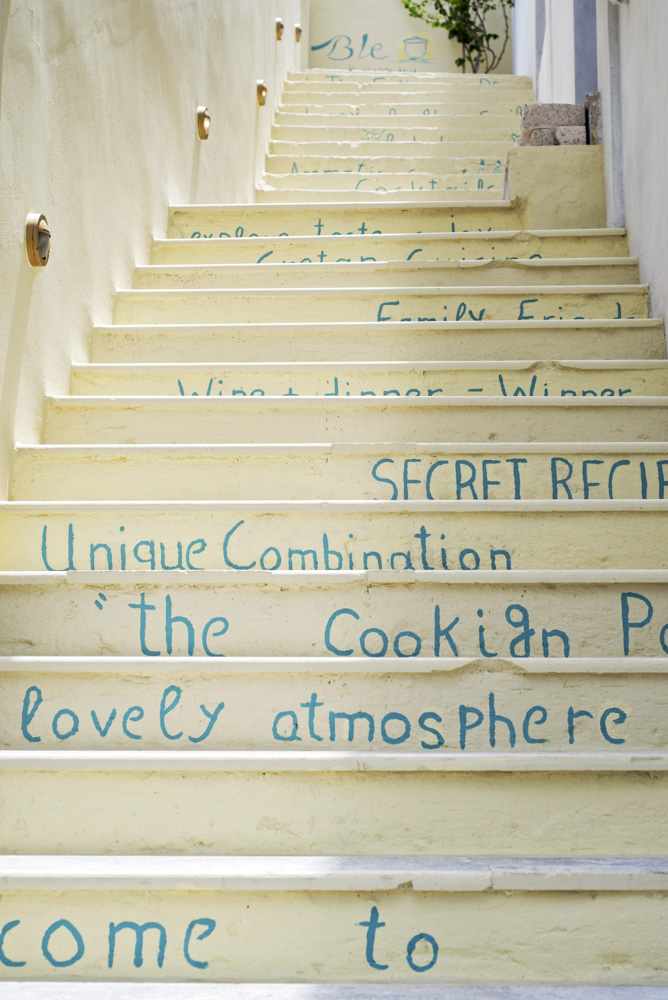 Ble
Cocktails
explore taste enjoy
Cretan Cuisine
Family Friends
Wine + dinner = Winner
SECRET RECIP
Unique Combination
"the Cookign Po
lovely atmosphere
come to